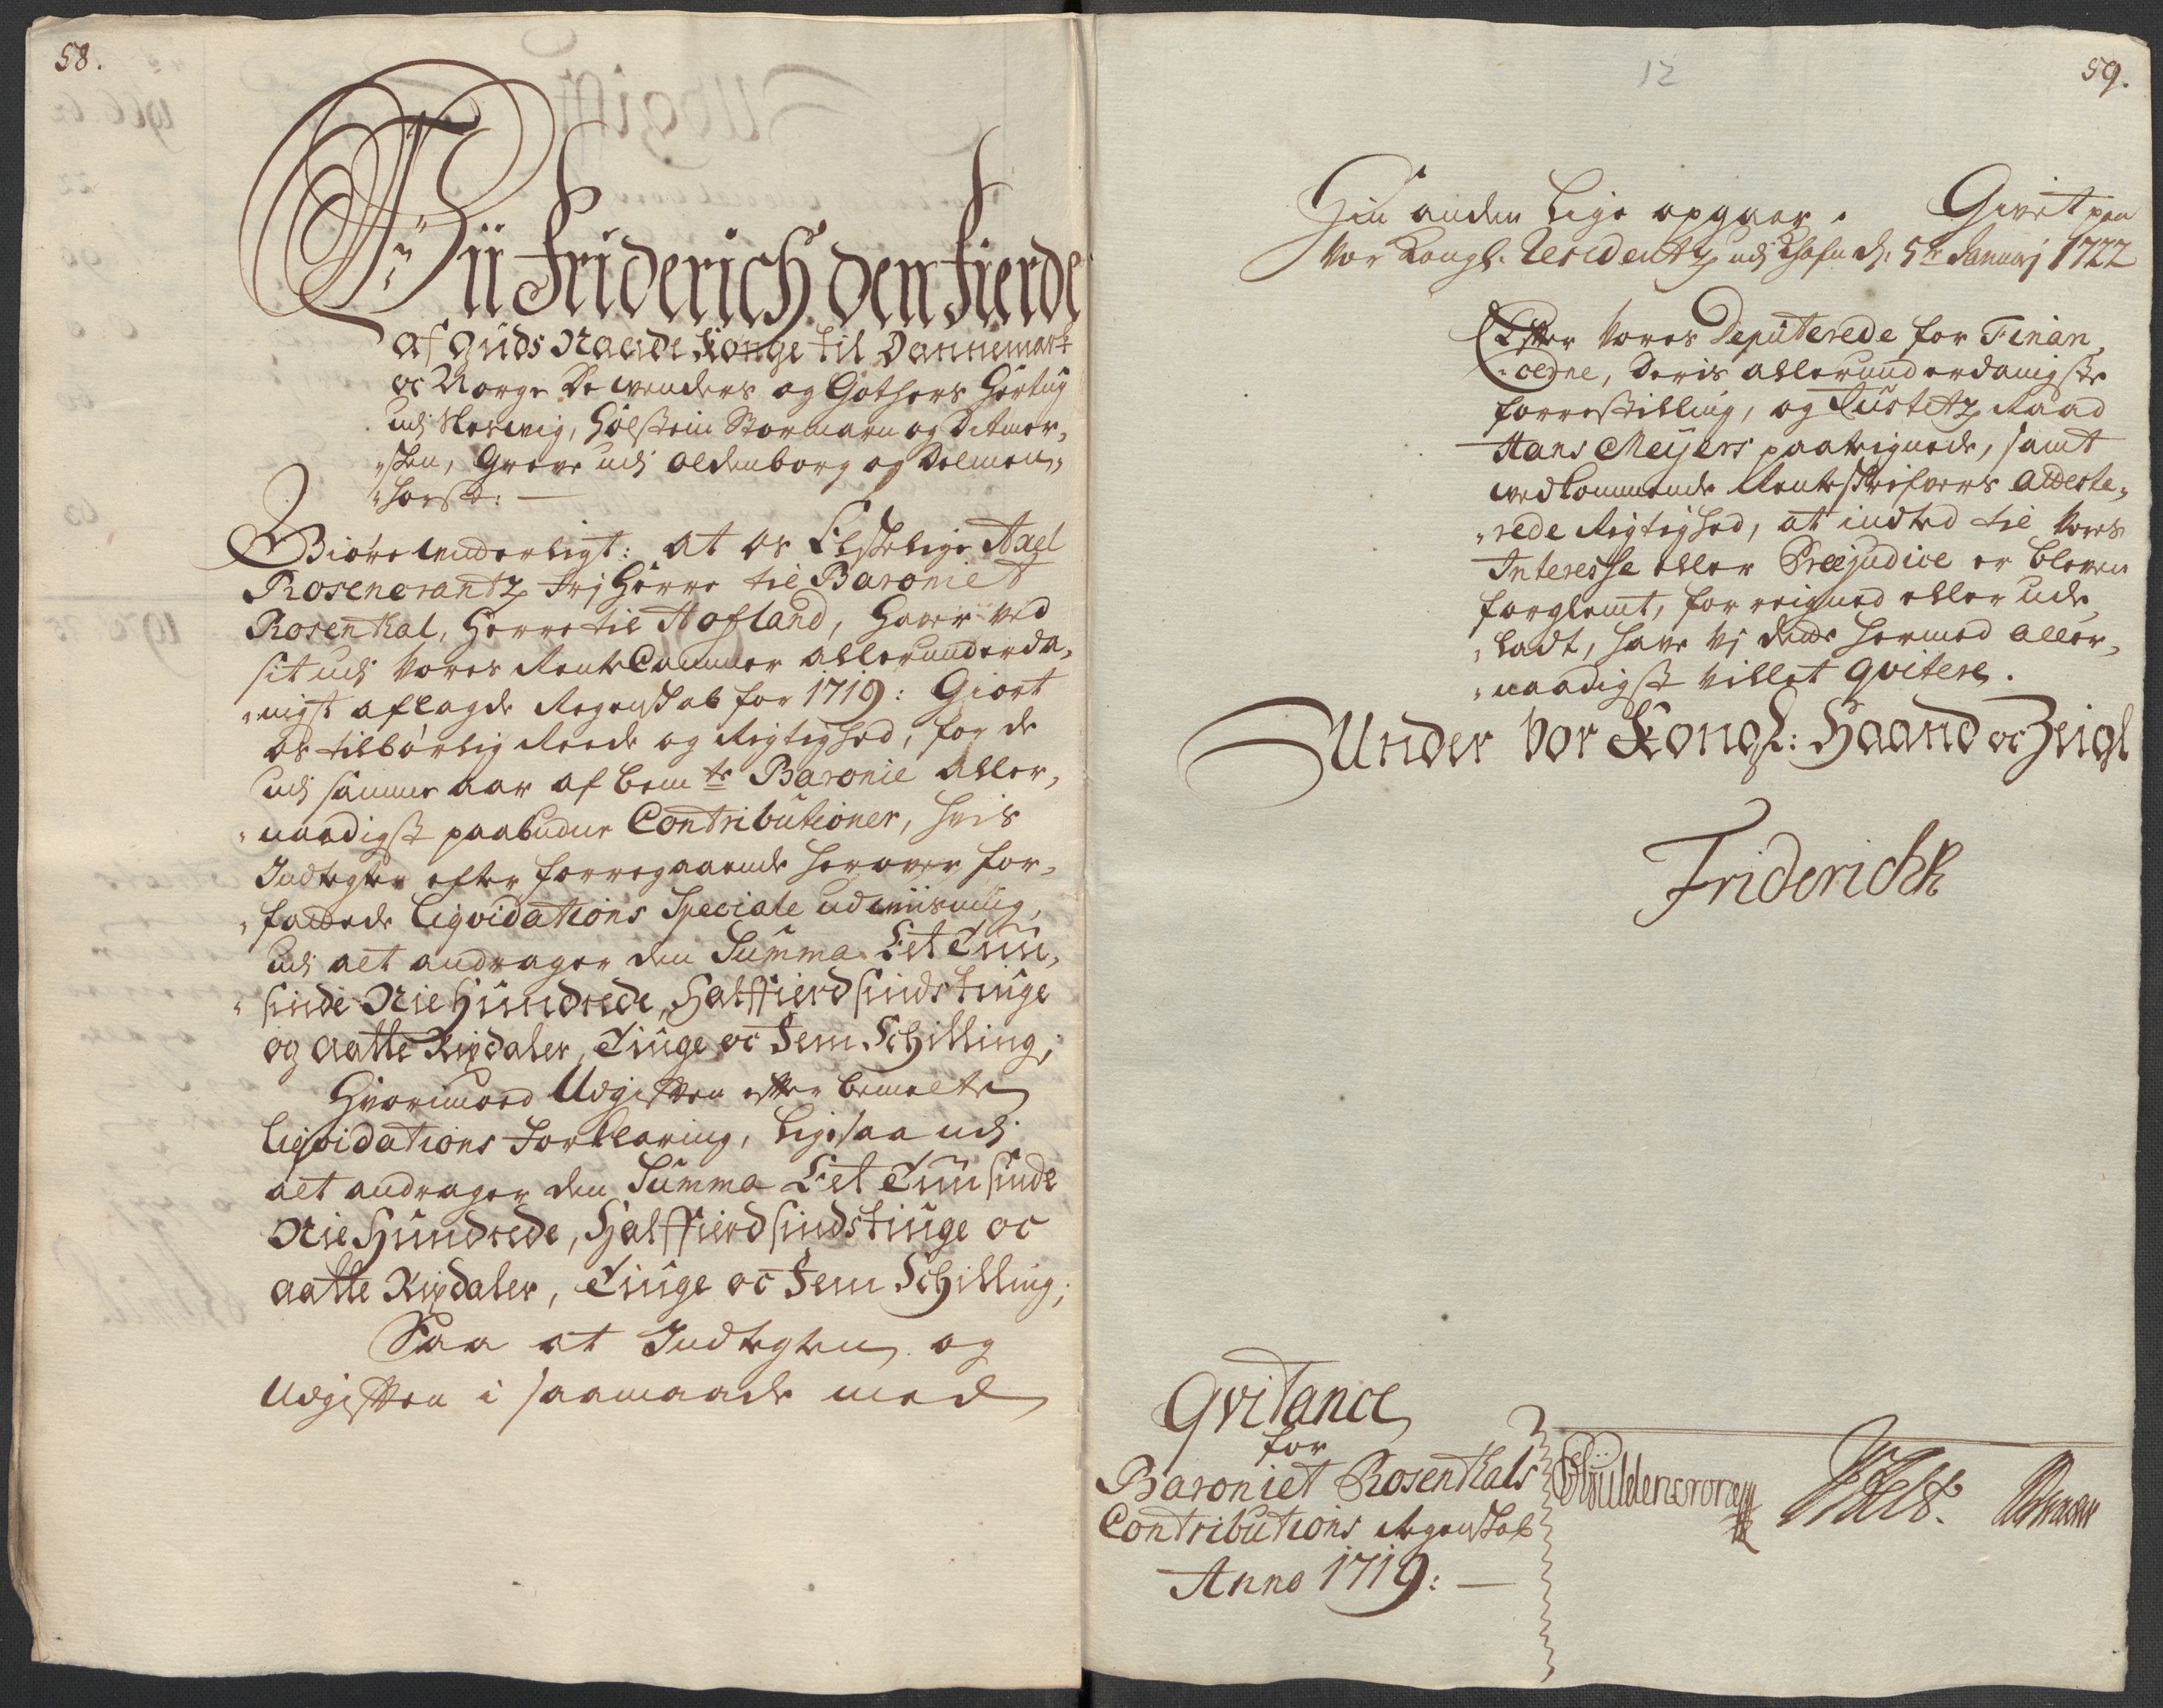 58.
Vii Friderich den Fierde
af Guds Naade Konge til Dannemark
oc Norge De Wenders og Gothers Hertug
udi Slesvig, Holstein Stormarn og Ditmer,
"sken, Greve udi Oldenborg og Delmen,,
"horst: —
Giöre Witterligt: at os Elskelige Axel
Rosencrantz Frj Herre til Baroniet
Rosenthal, Herre til Hofland, haver ved
sit udi Vores Rente Cammer allerunderda,
"nigst aflagde Regenskab for 1719: Giort
os tilbörlig Reede og Rigtighed, for de
udi samme aar af bemte Baronie aller,
"naadigst paabudne Contributioner, hvis
Indtegter efter foregaaende herover for,
"fattede Liqvidations Speciale udviisning,
udi alt andrager den Summa Eet Tuu,
"sinde Nie Hundrede, Halffierdsindstiuge
og aatte Rixdaler, Tiuge oc Fem Schilling;
Hvorimod Udgifften effter bemelte
Liqvidations Forklaring, ligesaa udi
alt andrager den Summa Eet Tuusinde
Nie Hundrede, Halffierdsindstiuge oc
aatte Rixdaler, Tiuge oc Fem Schilling;
Saa at Indtegten og
Udgifften i saamaade med
12
59.
Hin anden lige opgaaer. Givet paa
Vor Kongl. Residentz udi Khafn d: 5te Januarj 1722
Effter Vores Deputerede for Finan,
"cerne, Deris allerunderdanigste
forrestilling, og Justitz Raad
Hans Meijers paategnede, samt
vedkommende Renteskrifvers atteste,
"rede Rigtighed, at indted til Vores
Interesse eller Præjudice er bleven
forglemt, forreignet eller ude,
"ladt, have Vj dend hermed aller,
"naadigst villet qvitere.
Under Vor Kongl: Haand oc Zeigl
Friderich R
Qvitance
for
Baroniet Rosenthals
Contributions Regenskab
Anno 1719: —
CGuldencrone